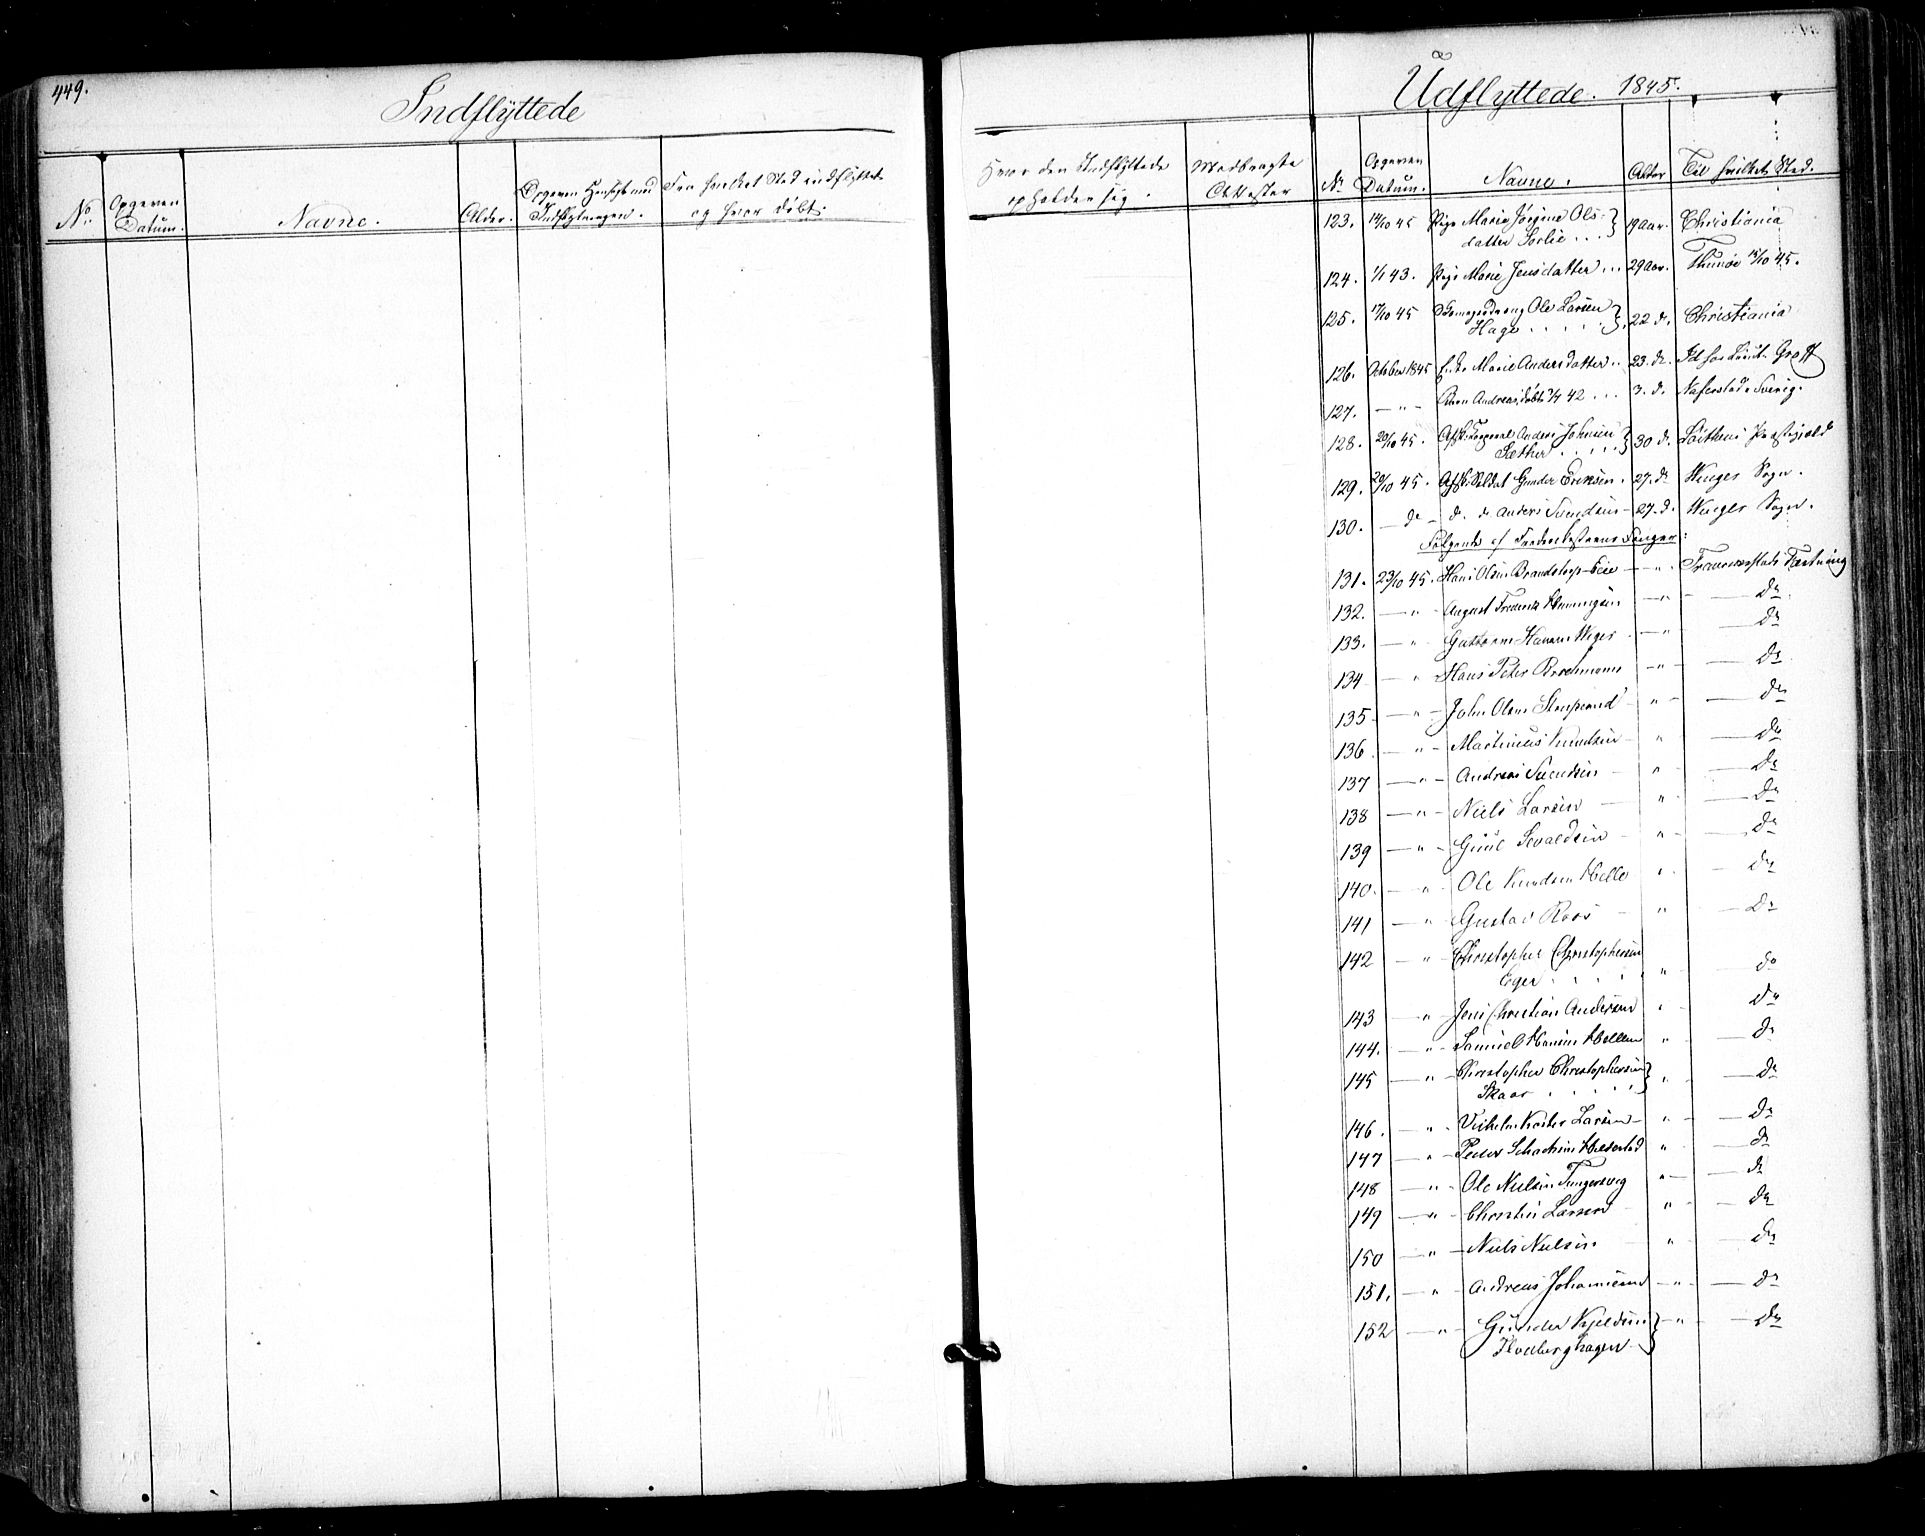 449.
Indflÿttede
Udflyttede. 1845.
No. Opgeven Datum. Navne. Alder. Opgeven Hensigt med Indflytningen. Fra hvilket Sted indflyttet og hvor døbt.
Hvor den Indflyttede opholder sig. Medbragte Attester
Nr. Opgeven Datum. Navne. Alder Til hvilket Sted.
123. 14/10 45 Pige Maria Jørgine Ols- 19 Aar. Christiania
datter Sorlie ...
124. 1/1 43. Pige Marie Jensdatter ... 29 Aar. Thunøe 15/10 45.
125. 17/10 45 Ole Larsen 22 do. Christiania
Hage . . . . .
126. October 1845 Enke Marie Andersdatter .. 23. do.
127. — " — Barn Andreas, døbt 3/4 42 ... 3. do. Sverig.
128. 20/10 45. Afsk. Corporal Anders Johnsen 30 do. Løithens Præstegjeld
Sæther . . . . .
129. 20/10 45. Afsk. Soldat Gunder Eriksen. 27. do Winger Sogn.
130. — do — do. do. Anders Svendsen — 27. do. Winger Sogn.
Følgende af Fæstningens Fanger:
131. 23/10 45. Hans Olsen Brandstorp-Eie — " — Fæstning
132. — " — August Fredrik Henningsen — " — do
133. — " Guttorm Hansen Wiger — " — do
134 — " — Hans Peter — " — do
135 — " — John Olsen — " — do
136 — " — Martinius Knudsen — " — do
137 — " — Andreas Svendsen — " — do
138 — " — Niels Larsen — " — do
139 — " — Sevaldsen — " — do
140. — " — Ole Knudsen Helle " — do
141 — " — Gustav Roos — " — do
142 — " — Christopher Christophersen
Eger . . . . " — do
143 — " — Jens Christian Andersen " — do
144. — " — Samuel Hansen Hellem " — do
145 — " — Christopher Christophersen
Skaar . . . . . " — do
146. — " — Larsen — " — do
147 — " — Peder " — do
148 — " — Ole Nielsen " — do
149 — " — Christen Larsen — " — do
150 — " — Niels Nielsen — " — do
151. — " — Andreas Johannesen — " — do
152 — " — Gunder Kjeldsen — " — do